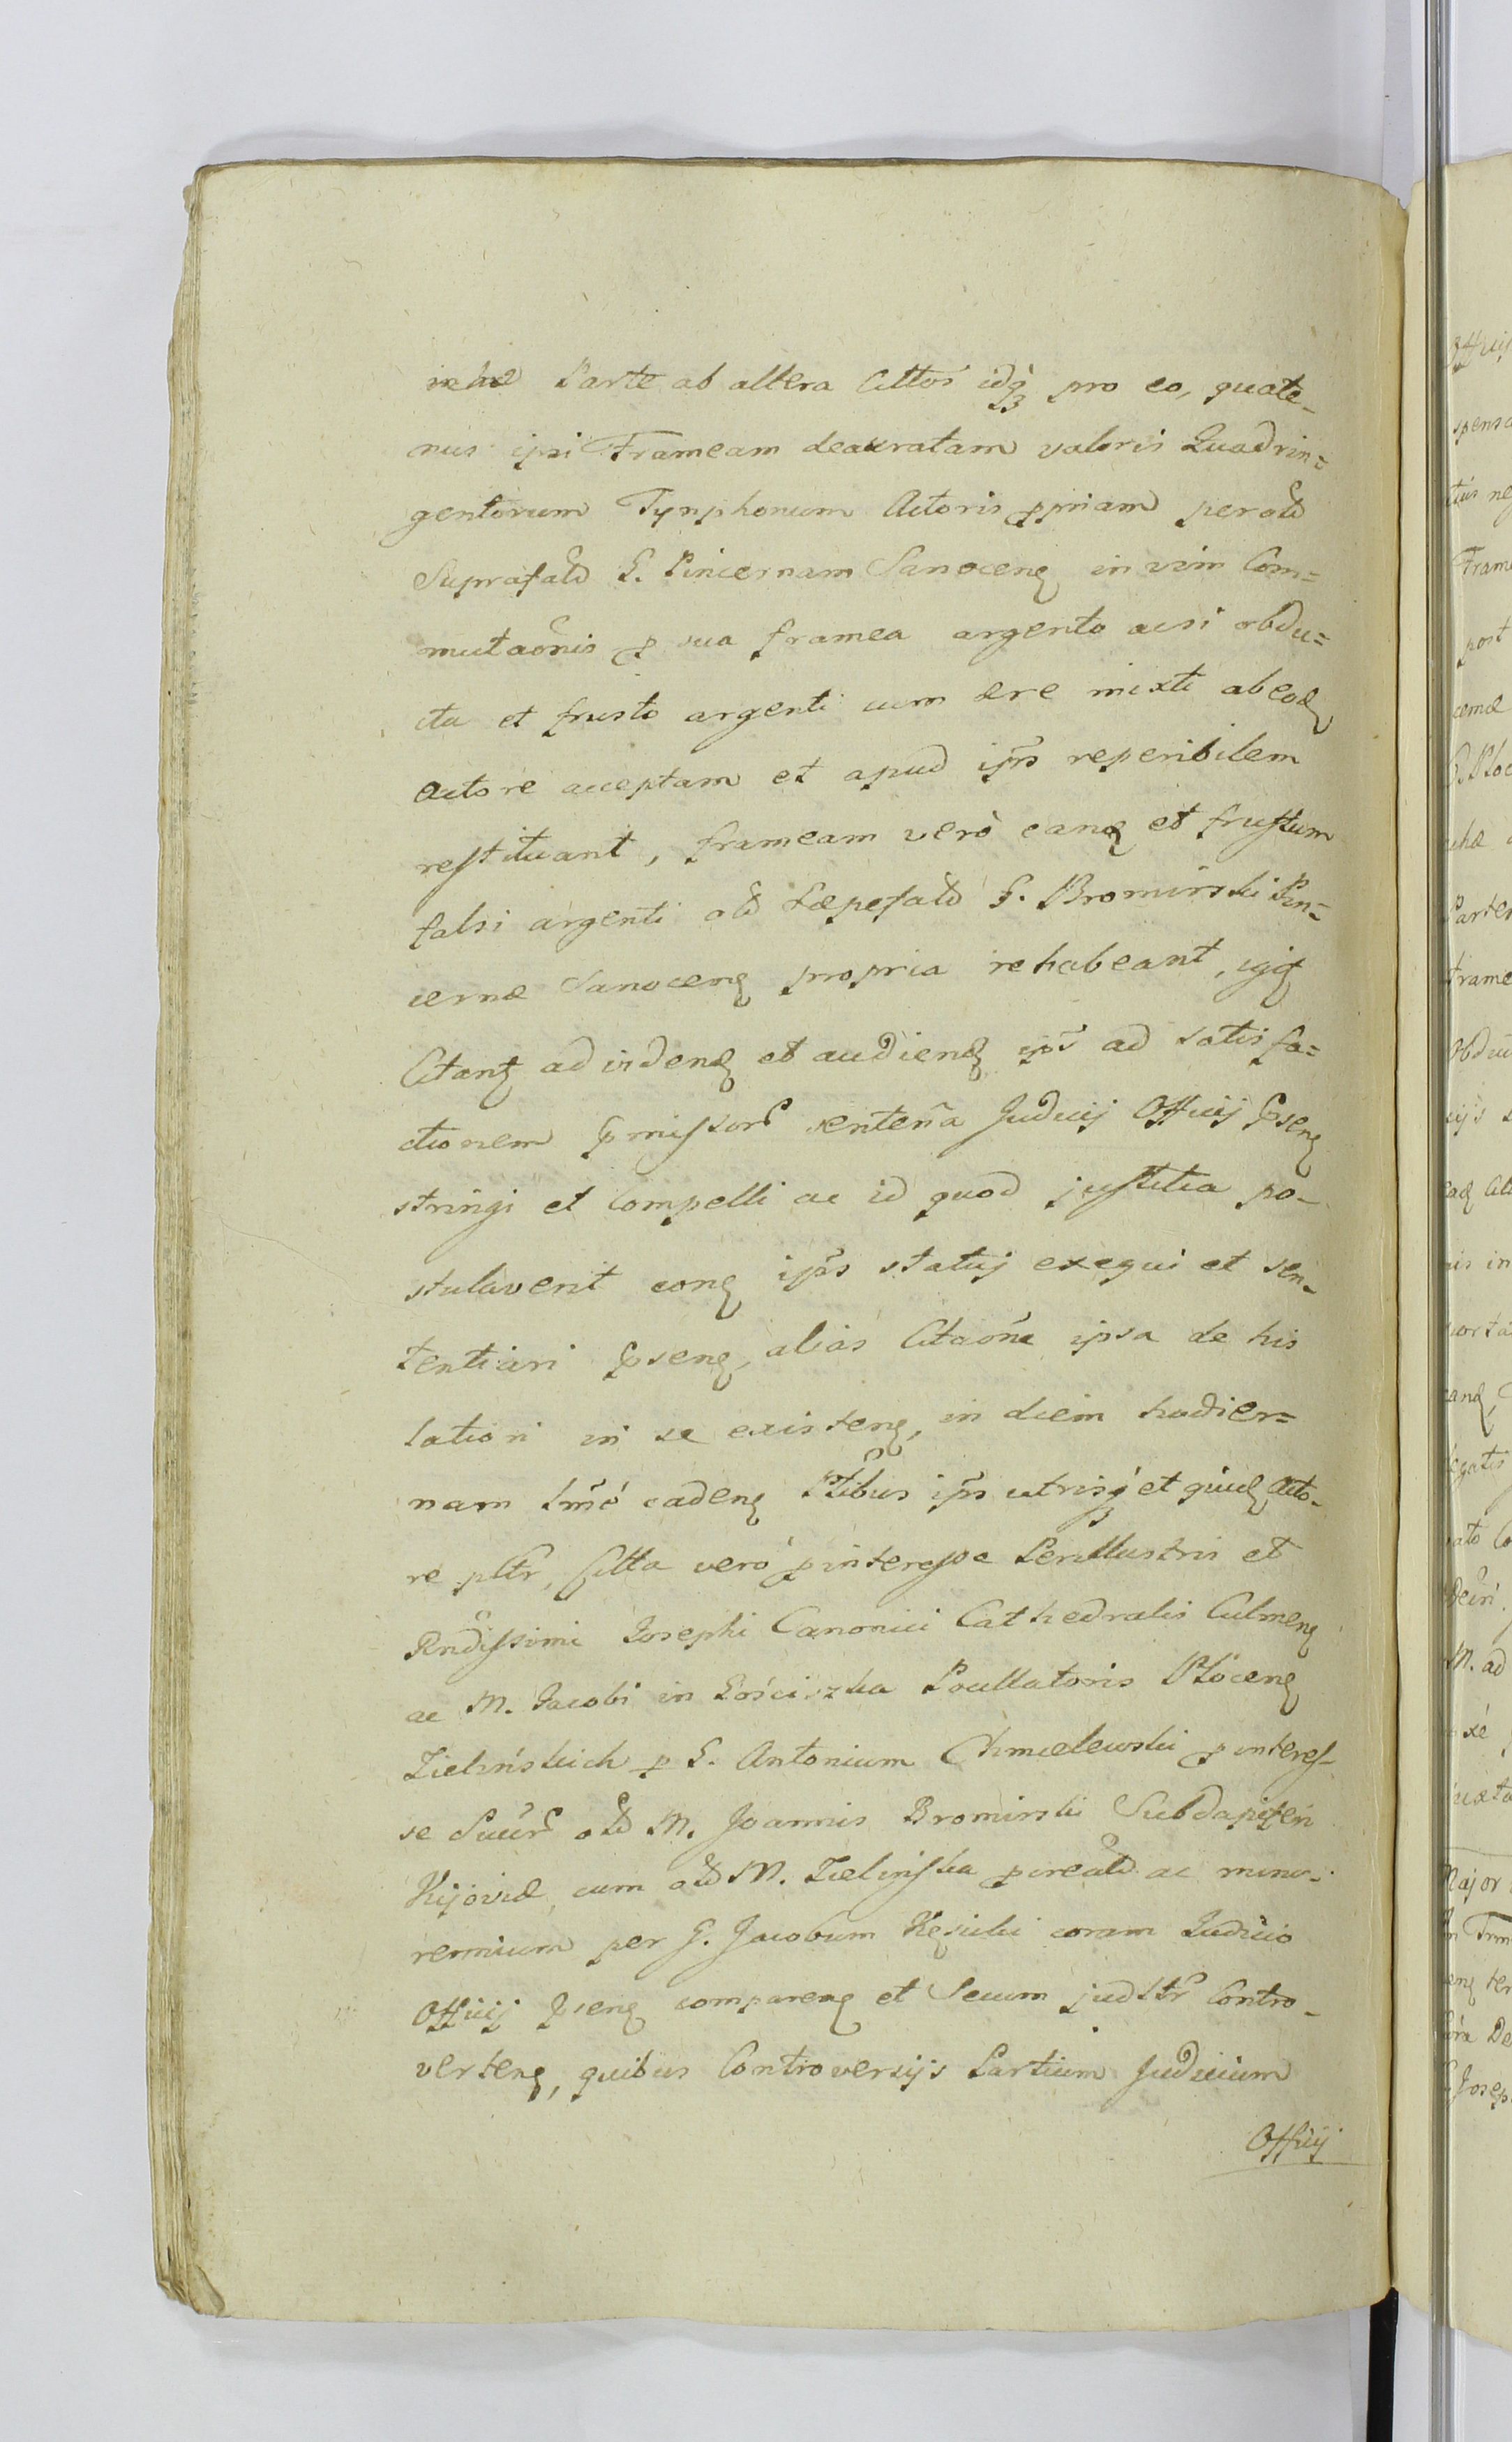 in hac Parte ab altera Cittos idq3 pro eo, quate-
nus ipsi Frameam deauratam valoris Quadrin=
gentorum Tynphonum Actoris ppriam per old
Suprafatd G. Pincernam Sanoceng in vim Com=
mutaonis p sua framea argento acsi obdu=
cta et frusto argenti cum aere mixti ab eod
Actore acceptam et apud ipss reperibilem
restituant, frameam verò eand et frustum
falsi argenti old saepefatd G. Bromirski Pin=
cernae Sanoceng propria rehabeant,
Citant ad vidend et audiend ips ad satisfa=
ctionem pmissor sentena Judicij Officij pseng
stringi et Compelli ac id quod justitia po-
stulaverit cong ipss statuj exequi et sen-
tentiari pseng, alias Citaone ipsa de his
latiori in se existeng, in diem hodier=
nam lmo cadeng Ptibus ipss utrisq3 et quid Acto-
re pltr, Citta verò p interesse Perillustris et
Rndissimi Josephi Canonici Cathedralis Culmeng
ac M. Jacobi in Łościszka Pocillatoris Płoceng
Zielińskich p G. Antonium Chmielewski p interes-
se Suur old M. Joannis Bromirski Subdapiferi
Kijoviae, cum old M. Zielińska pcreatd ac mino-
rennium per G. Jacobum Kęsicki coram Judicio
Officij pseng compareng et Secum judltr Contro-
verteng, quibus Controversijs Partium Judicium
Officij